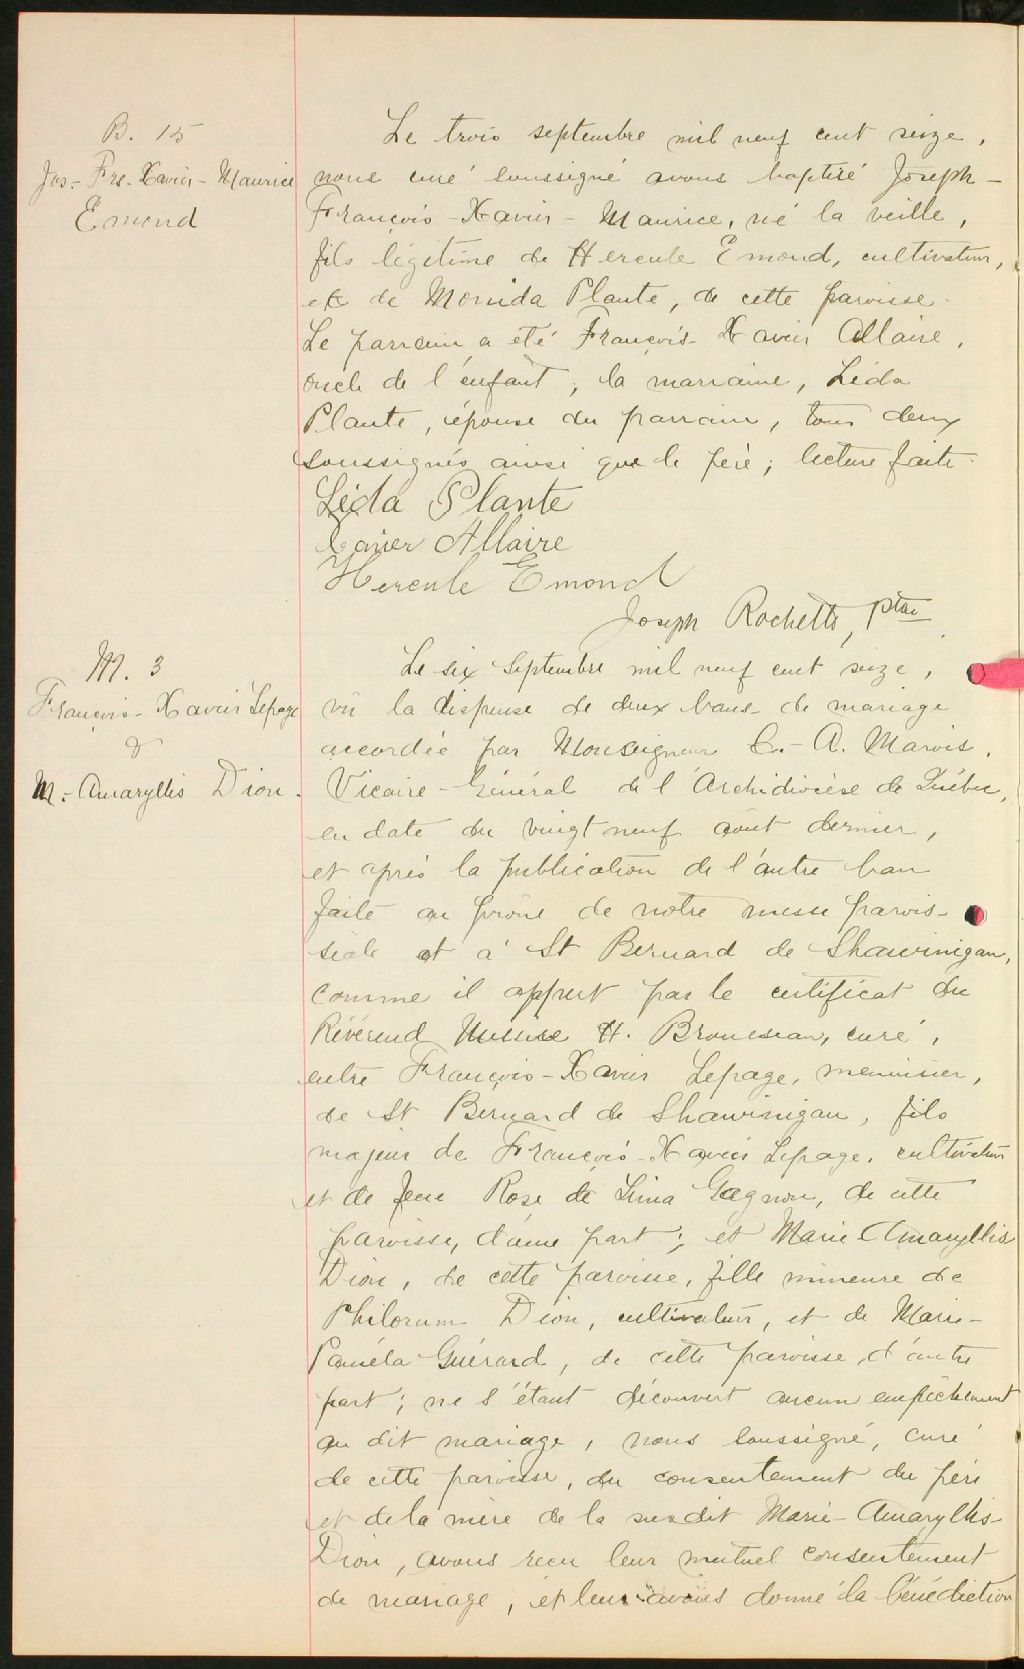 B. 15
Jos.- Frs.- Xavier - Maurice
Emond
Le trois septembre mil neuf cent seize,
nous curé soussigné avons baptisé Joseph-
François-Xavier-Maurice, né la veille,
fils légitime de Hercule Emond, cultivateur,
et de Monida Plante, de cette paroisse.
Le parrain a été François-Xavier Allaire,
oncle de l'enfant; la marraine, Léda
Plante, épouse du parrain, tous deux
soussignés ainsi que le père; lecture faite.
Léda Plante
Xavier Allaire
Hercule Emond
Joseph Rochette, Ptre
M. 3
François-Xavier Lepage
&
M.- Amaryllis Dion.
Le six Septembre mil neuf cent seize,
vu la dispense de deux bans de mariage
accordée par Monseigneur C.-A. Marois,
Vicaire-Général de l'Archidiocèse de Québec,
en date du vingt neuf août dernier,
et après la publication de l'autre ban
faite au prône de notre messe parois-
siale et à St Bernard de Shawinigan,
comme il appert par le certificat du
Révérend Messire H. Brousseau, curé,
entre François-Xavier Lepage, menuisier,
de St Bernard de Shawinigan, fils
majeur de François-Xavier Lepage, cultivateur
et de feue Rose de Lima Gagnon, de cette
paroisse, d'une part; et Marie Amaryllis
Dion, de cette paroisse, fille mineure de
Philorum Dion, cultivateur, et de Marie-
Paméla Guérard, de cette paroisse, d'autre
part; ne s'étant découvert aucun empêchement
au dit mariage, nous soussigné, curé
de cette paroisse, du consentement du père
et de la mère de la susdit Marie-Amaryllis-
Dion, avons recu leur mutuel consentement
de mariage, et leur avons donné la bénédiction